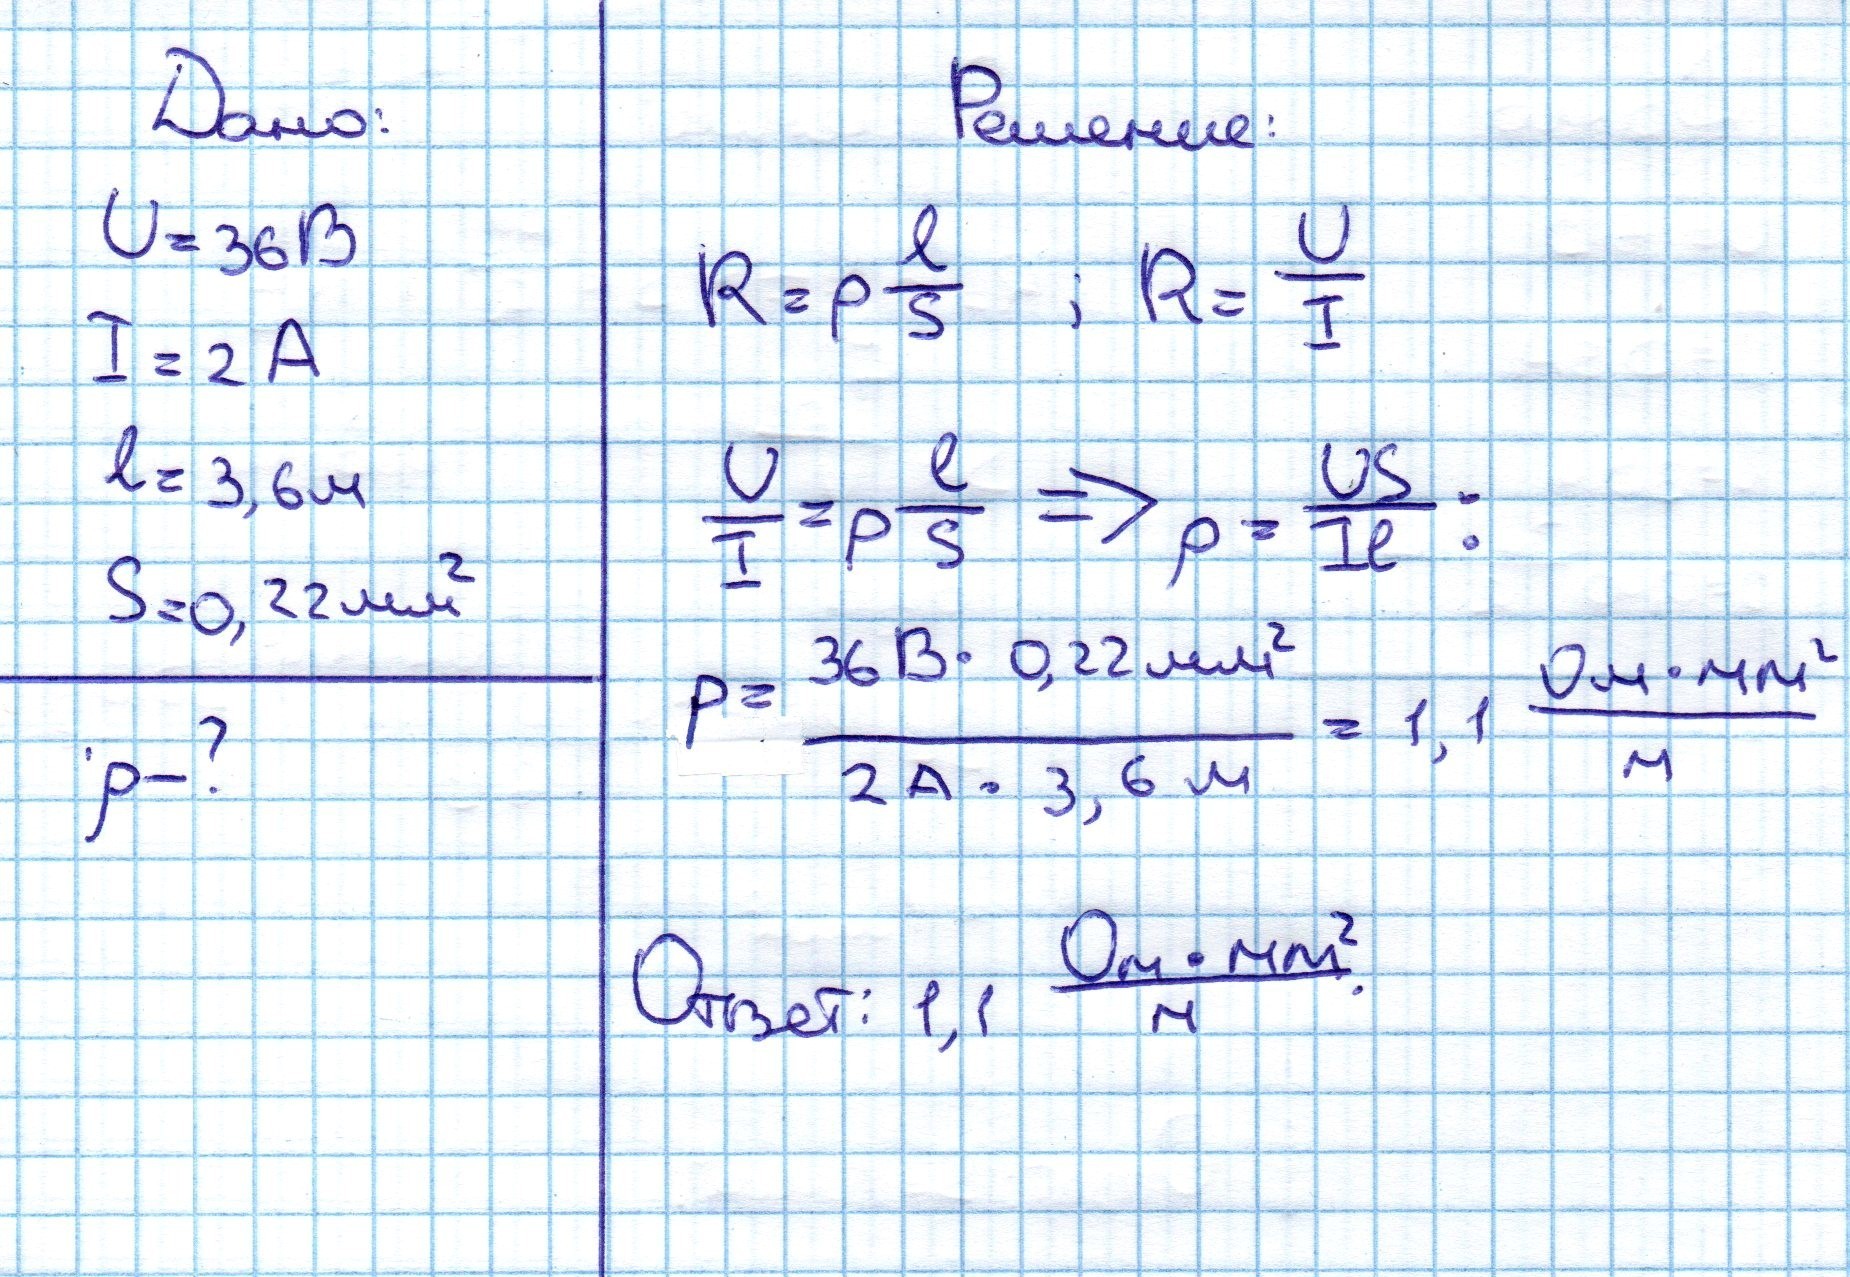 Дано:
U=36В
I=2А
l=3,6м
S=0,22мм²
ρ-?
Решение:
R=ρ l/S ; R= U/I
U/I = ρ l/S => ρ = US/Il :
ρ= 36В · 0,22мм² / 2А · 3,6м = 1,1 Ом·мм²/м
Ответ: 1,1 Ом·мм²/м.